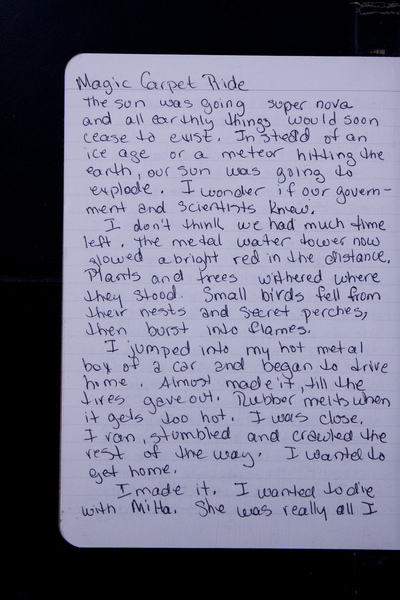 Magic Carpet Ride
the sun was going super nova
and all earthly things would soon
cease to exist. In stead of an
ice age or a meteor hitting the
earth, our sun was going to
explode. I wonder if our govern-
ment and scientists knew.
I don't think we had much time
left. The metal water tower now
glowed a bright red in the distance.
Plants and trees withered where
they stood. Small birds fell from
their nests and secret perches,
then burst into flames.
I jumped into my hot metal
box of a car and began to drive
home. Almost made it, till the
tires gave out. Rubber melts when
it gets too hot. I was close.
I ran, stumbled and crawled the
rest of the way. I wanted to
get home.
I made it. I wanted to die
with Mitta. She was really all I